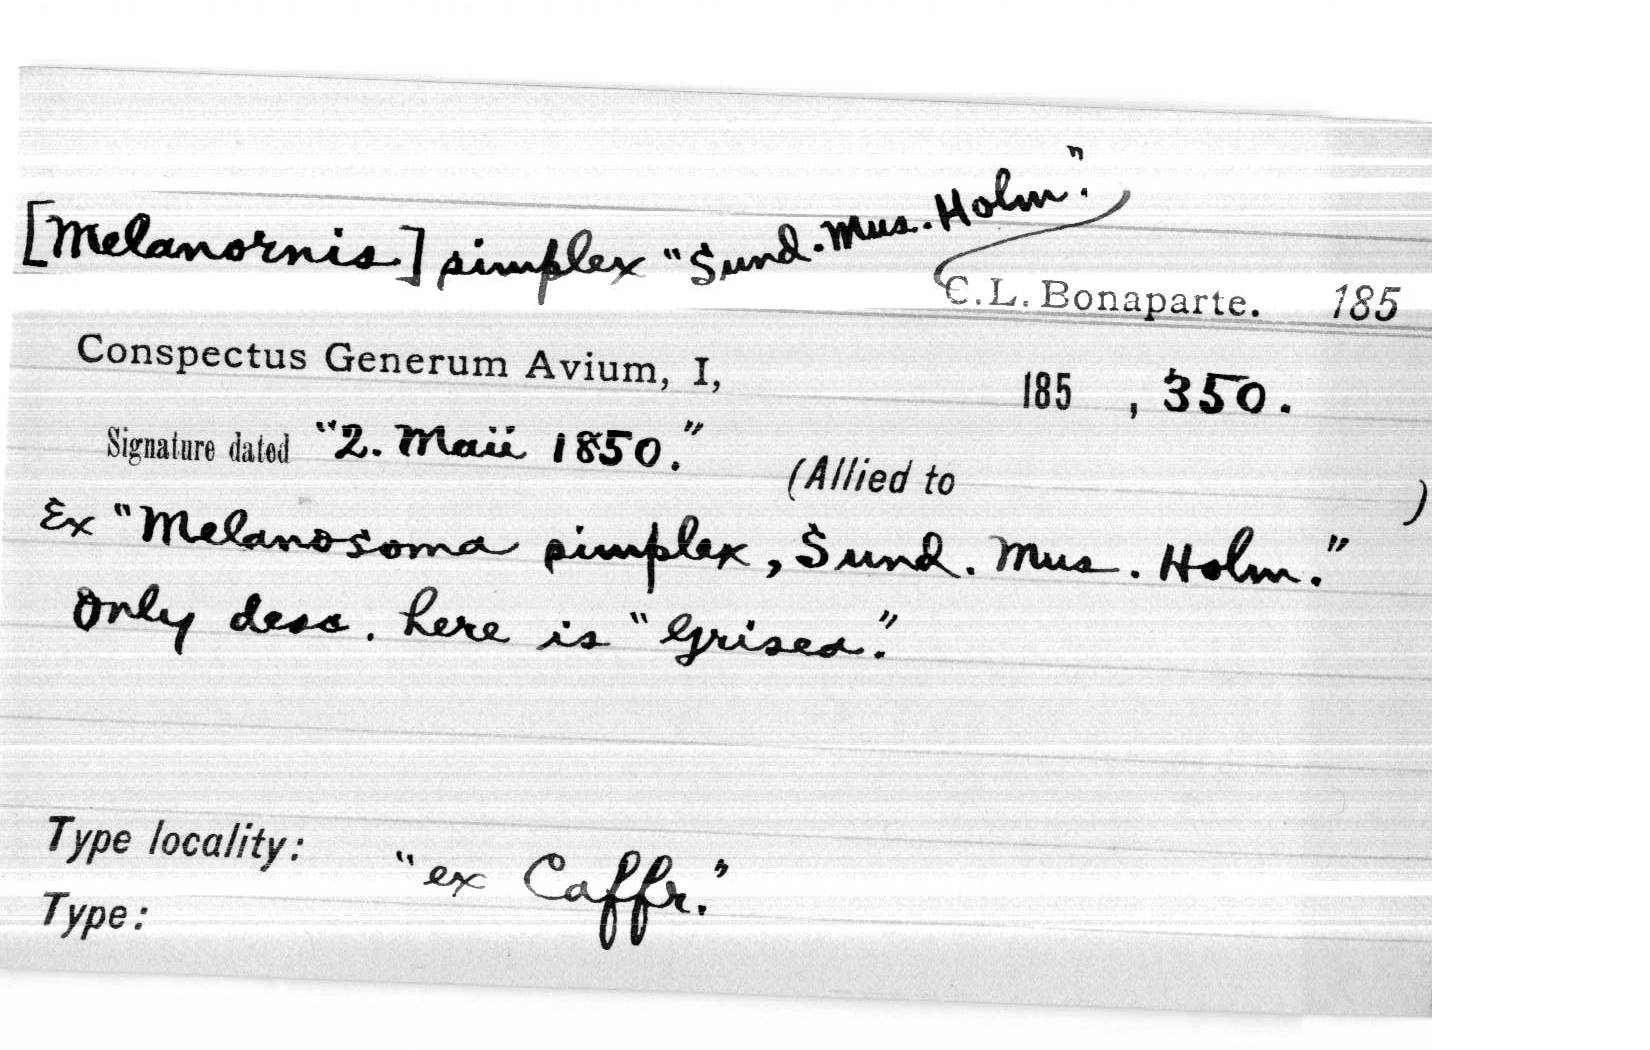 [Melanornis] simplex "Sund. Mus. Holm."
C. L. Bonaparte. 185
Conspectus Generum Avium, I, 185 , 350.
Signature dated "2. Maii 1850."
(Allied to )
Ex "Melanosoma simplex, Sund. Mus. Holm."
Only desc. here is "Grisea."
Type locality: "ex Caffr."
Type: